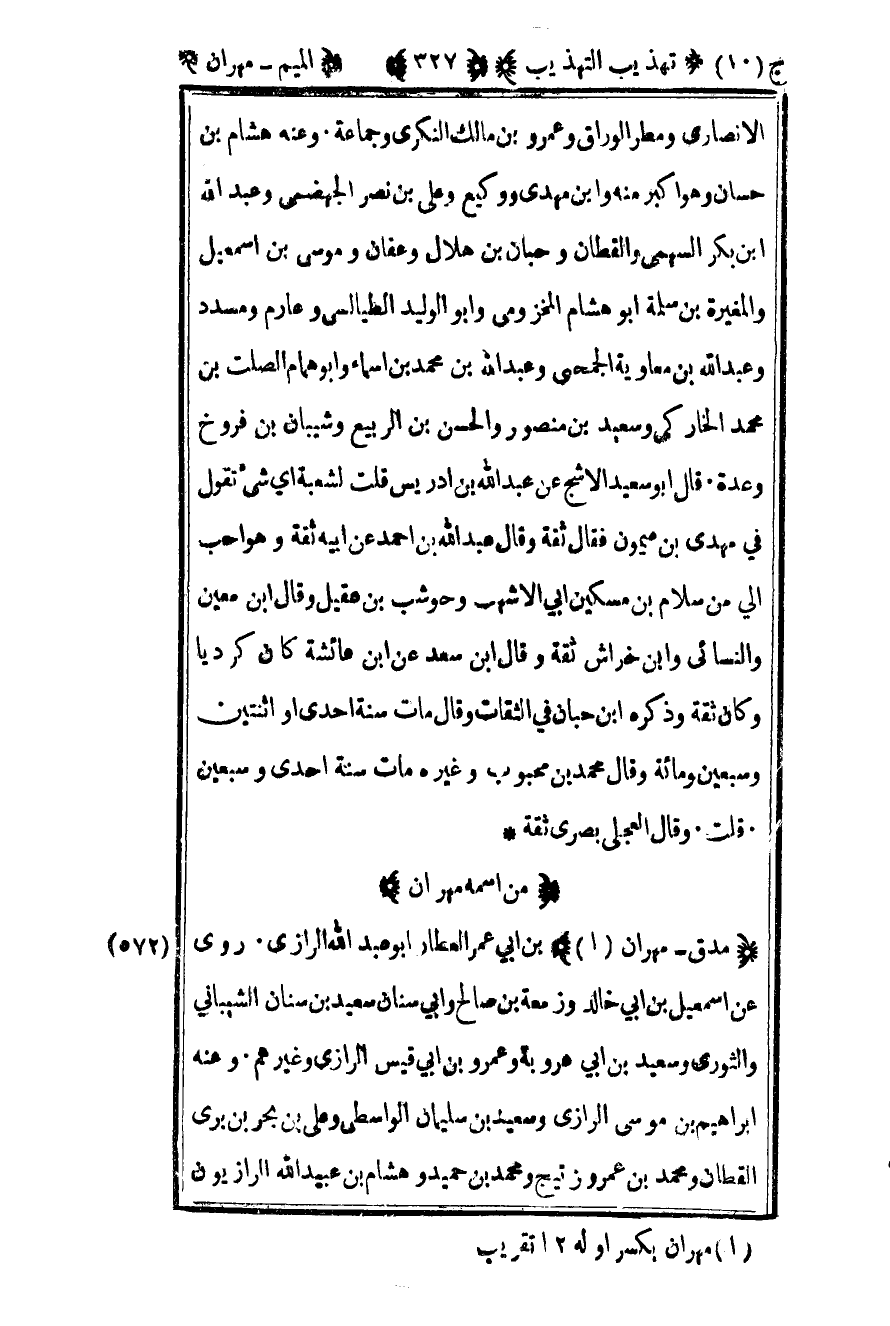 ج (١٠) * تهذيب التهذيب * ﴿ ٣٢٧ ﴾ ﴿ الميم - مهران ﴾
الانصارى ومطر الوراق وعمرو بن مالك النكرى وجماعة . وعنه هشام بن
حسان وهو اكبر منه وابن مهدى ووكيع وعلى بن نصر الجهضمى وعبد الله
ابن بكر السهمى والقطان و حبان بن هلال وعفان و موسى بن اسمعيل
والمغيرة بن سلمة ابو هشام المخزومى وابو الوليد الطيالسى و عارم ومسدد
وعبدالله بن معاوية الجمحى وعبدالله بن محمد بن اسماء وابو همام الصلت بن
محمد الخاركي وسعيد بن منصور والحسن بن الربيع وشيبان بن فروخ
وعدة . قال ابو سعيد الاشج عن عبدالله بن ادريس قلت لشعبة اي شئ تقول
في مهدى بن ميمون فقال ثقة وقال عبدالله بن احمد عن ابيه ثقة و هو احب
الي من سلام بن مسكين ابي الاشهب وحوشب بن عقيل وقال ابن معين
والنسائى وابن خراش ثقة و قال ابن سعد عن ابن عائشة كان كرديا
وكان ثقة وذكره ابن حبان في الثقات وقال مات سنة احدى او اثنتين
وسبعين ومائة وقال محمد بن محبوب وغيره مات سنة احدى وسبعين
. قلت . وقال العجلي بصرى ثقة *
﴿ من اسمه مهران ﴾
﴿ مدق - مهران (١) ﴾ بن ابي عمر العطار ابو عبد الله الرازى . روى (٥٧٢)
عن اسمعيل بن ابي خالد وزمعة بن صالح وابي سنان سعيد بن سنان الشيباني
والثورى وسعيد بن ابي عروبة وعمرو بن ابي قيس الرازى وغيرهم . وعنه
ابراهيم بن موسى الرازى وسعيد بن سليمان الواسطى وعلى بن بحر بن برى
القطان ومحمد بن عمرو زنيج ومحمد بن حميد و هشام بن عبيدالله الرازيون
(١) مهران بكسر اوله ١٢ تقريب